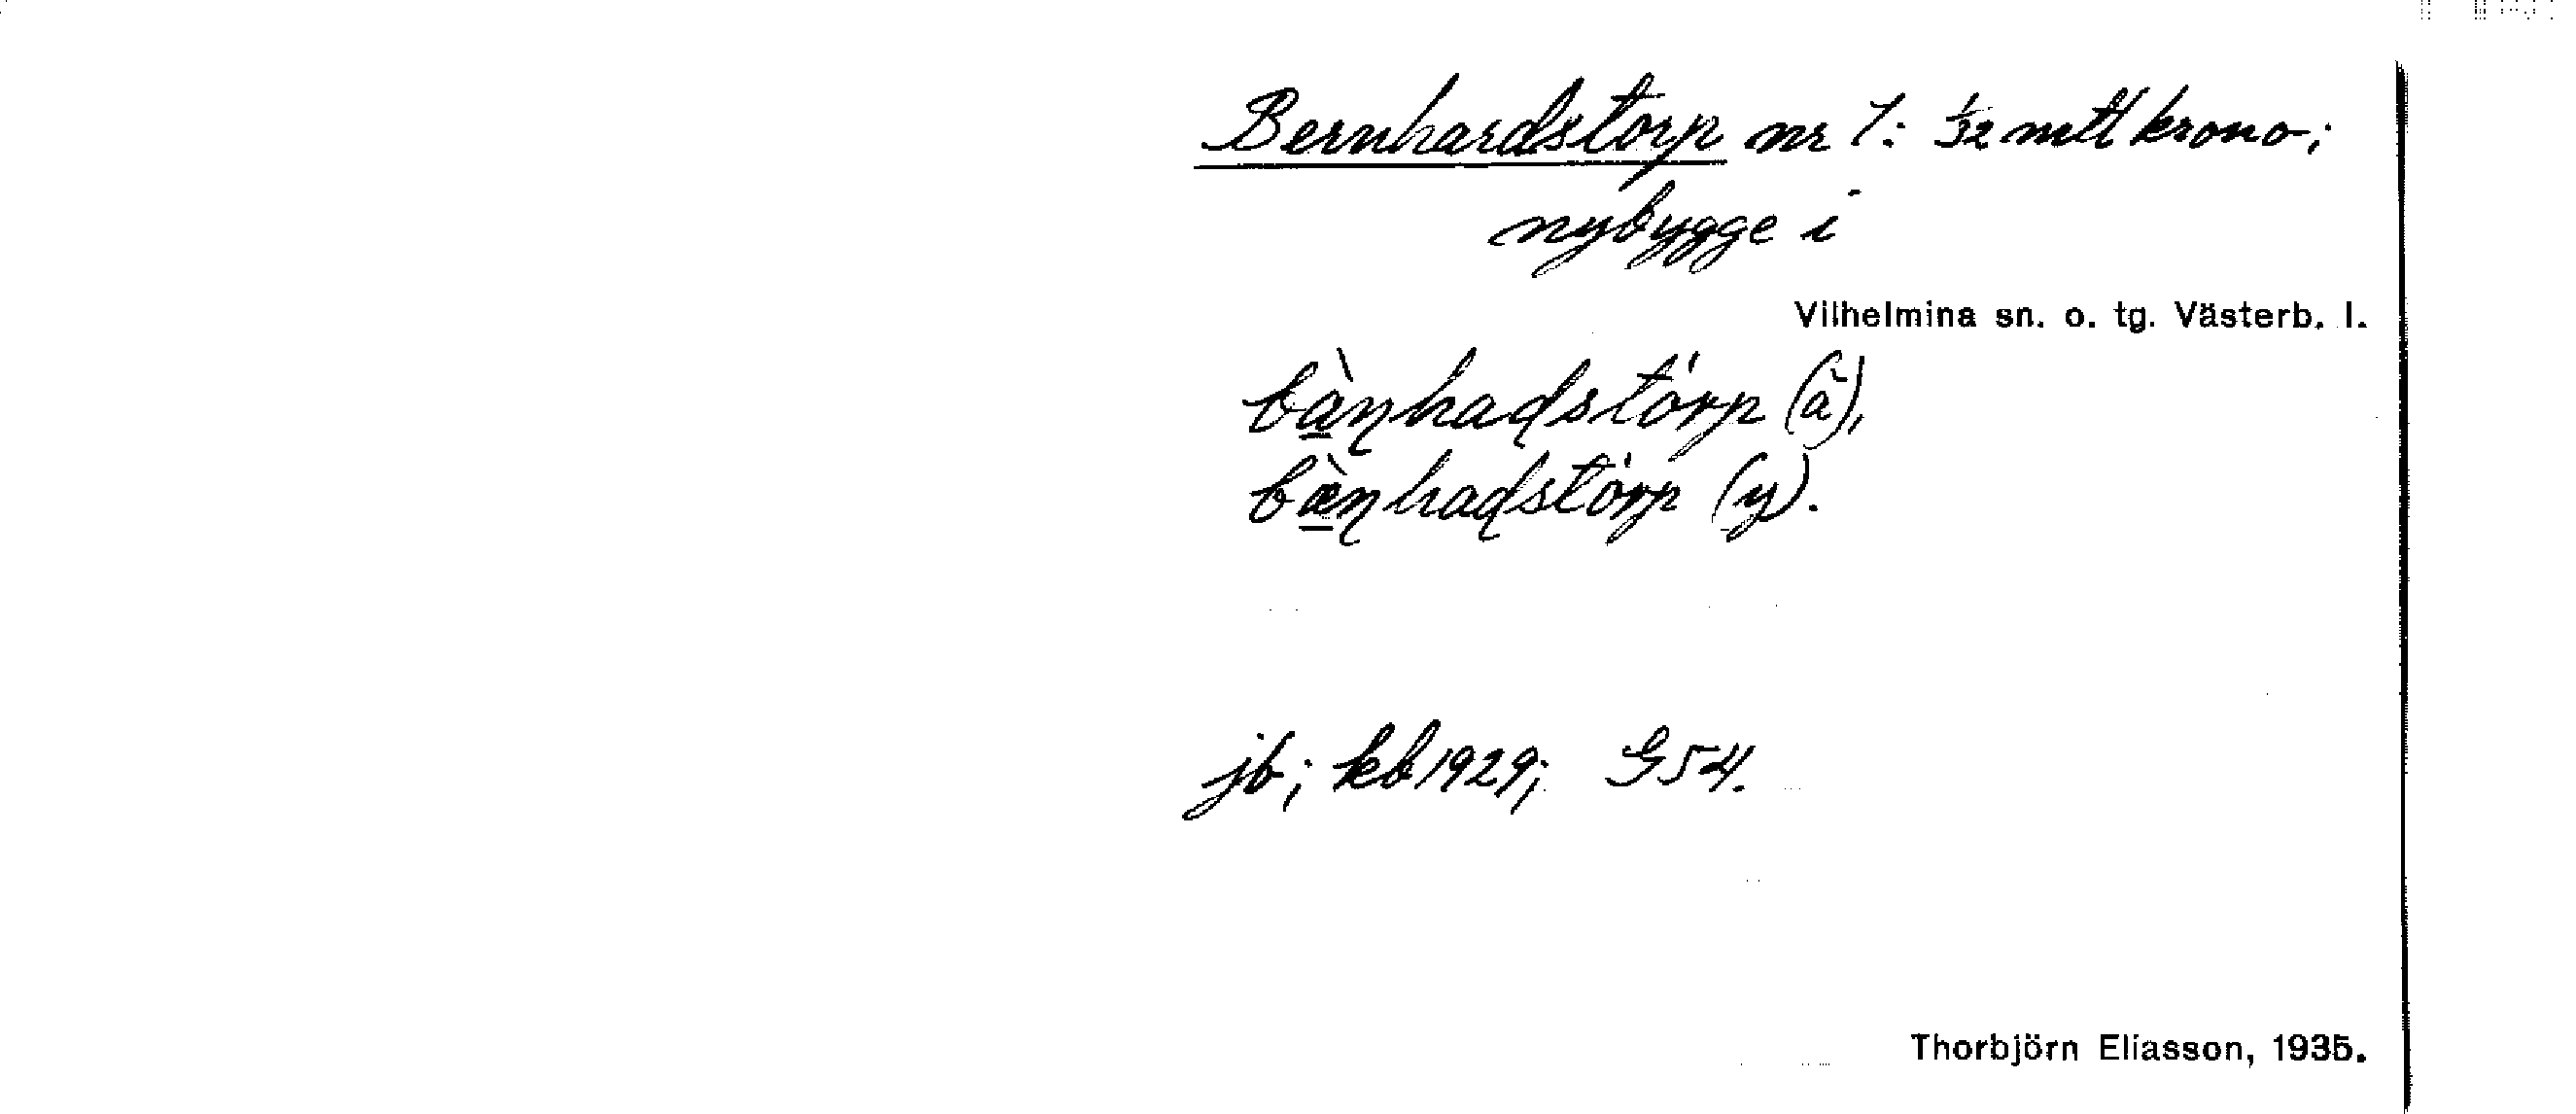 Bernhardstorp nr 1: 1/32 mtl krono;
nybygge i
Vilhelmina sn. o. tg. Västerb. l.
bàṇhadstórp (ä),
bæ̀ṇhadstórp (y).
jb; kb 1929; G54.
Thorbjörn Eliasson, 1935.